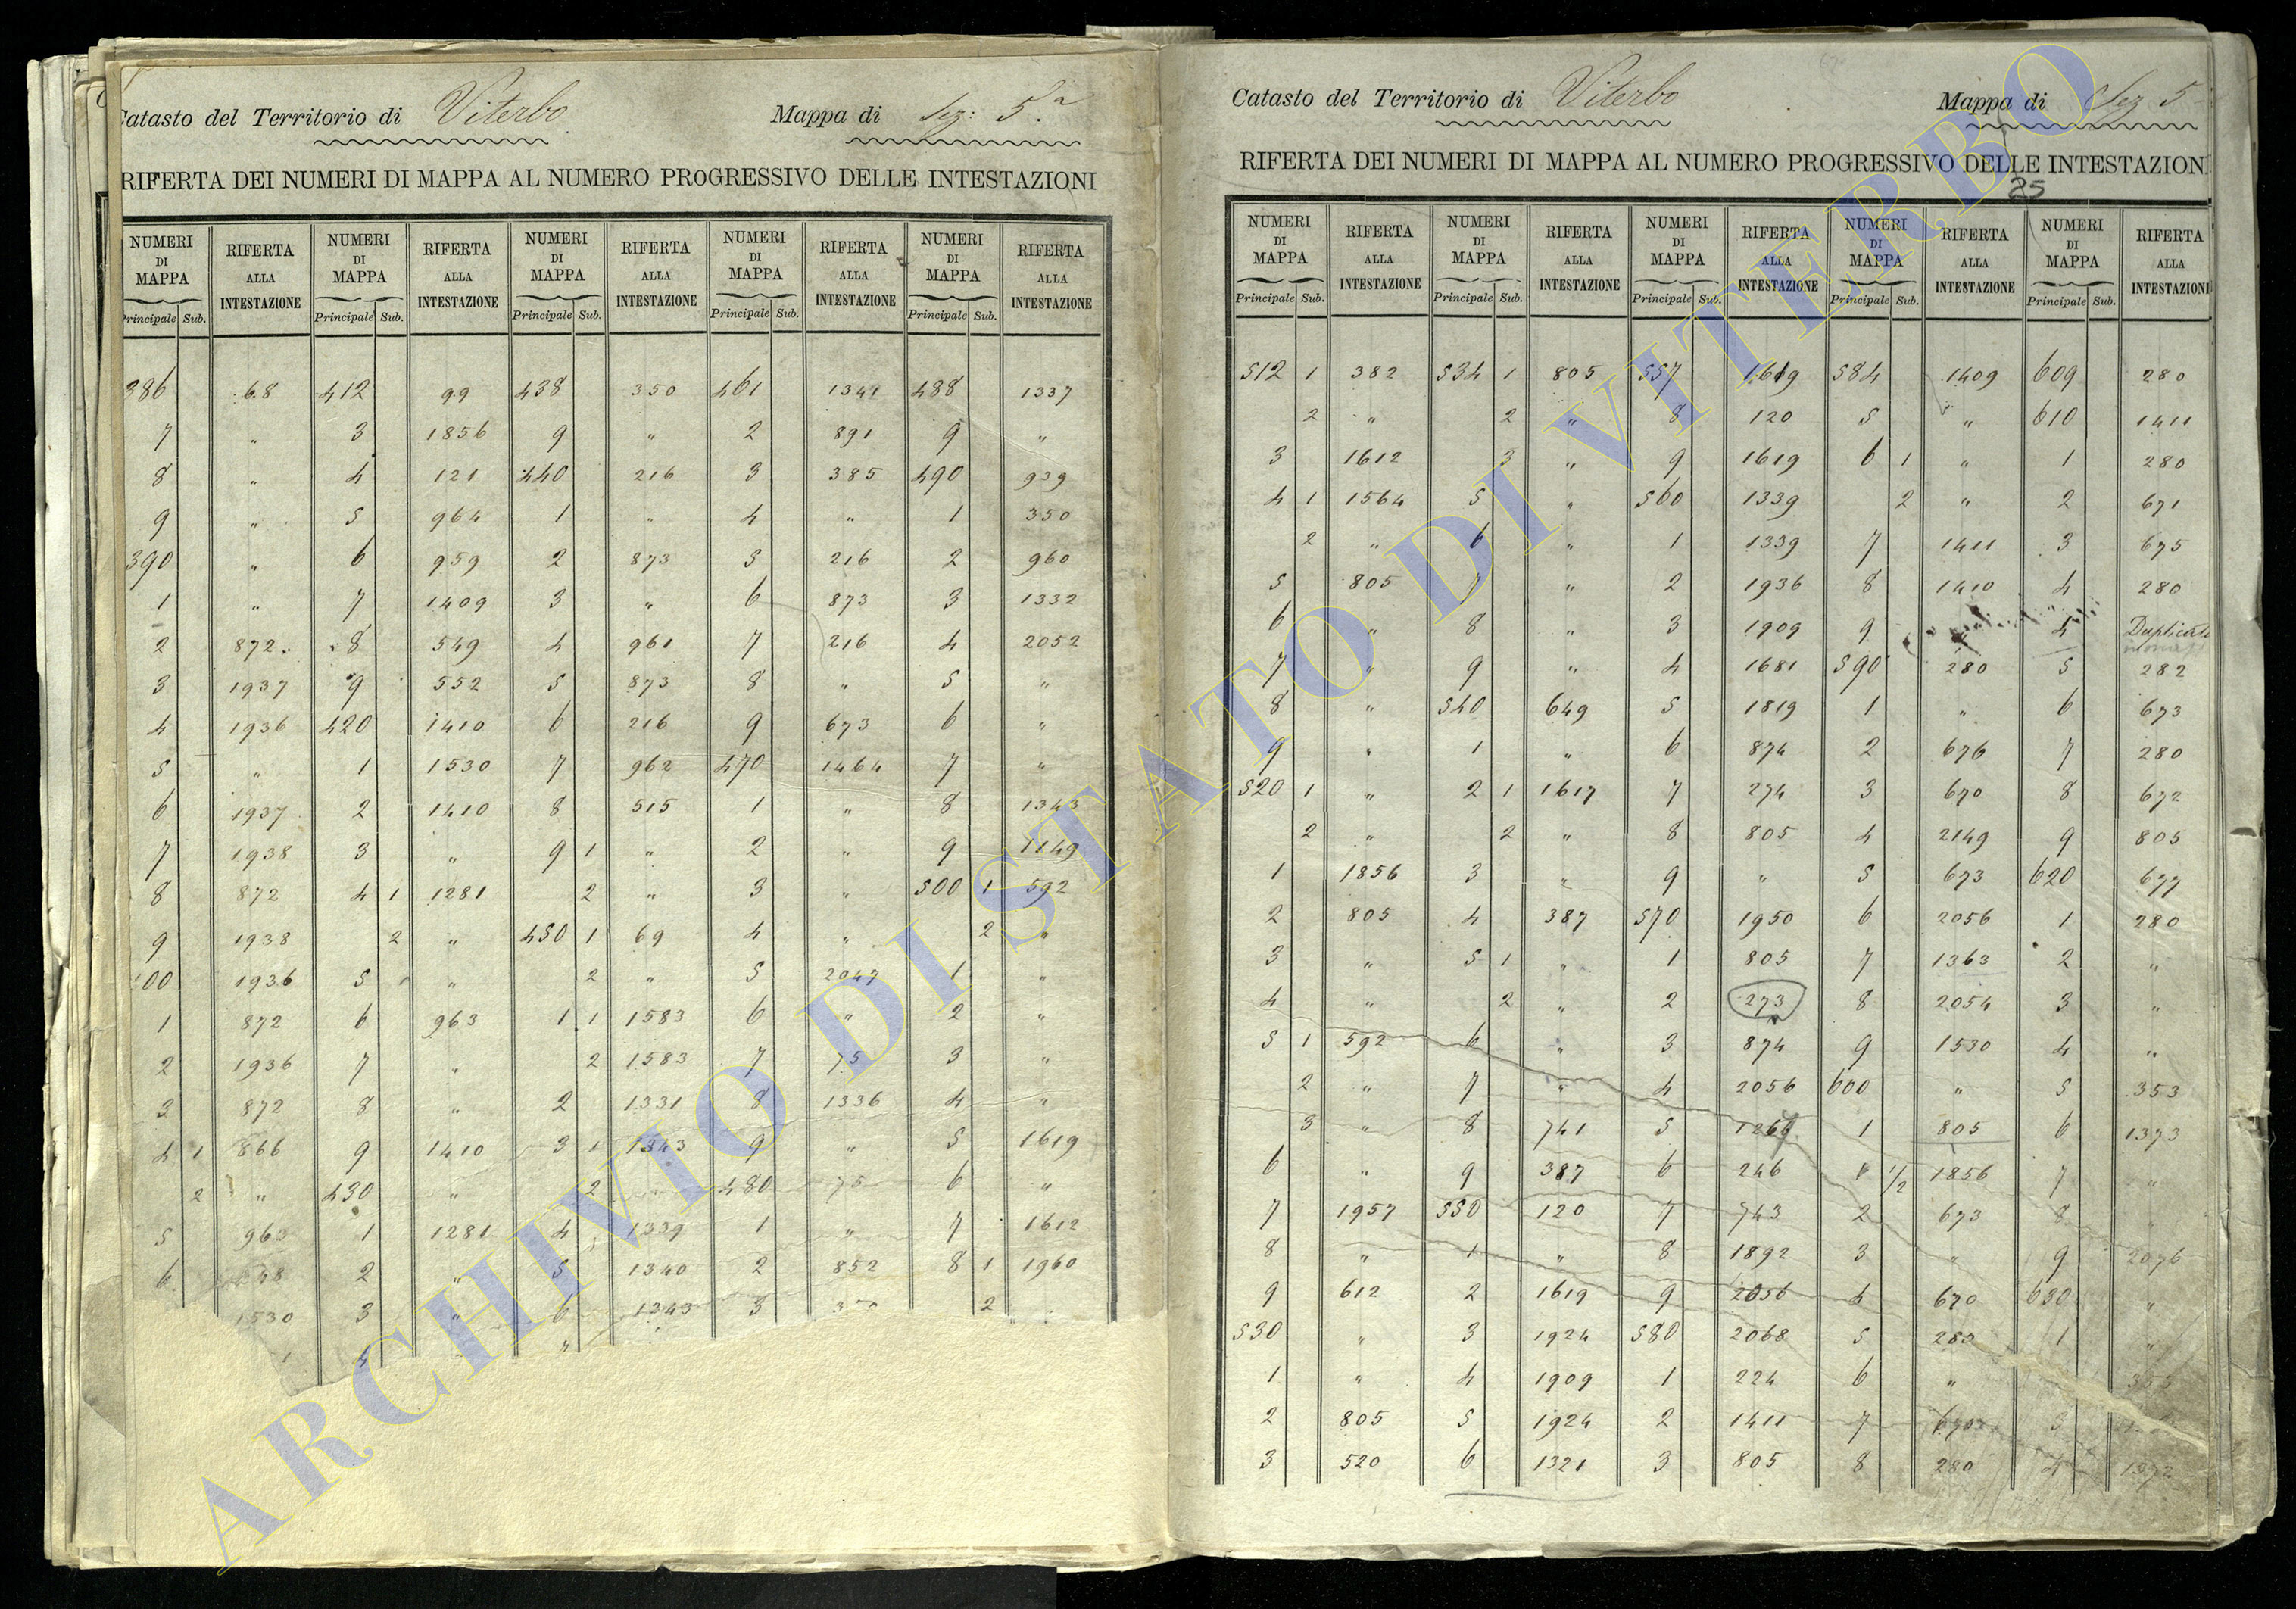 Catasto del Territorio di Viterbo Mappa di Sez: 5.a
RIFERTA DEI NUMERI DI MAPPA AL NUMERO PROGRESSIVO DELLE INTESTAZIONI
NUMERI DI MAPPA RIFERTA ALLA INTESTAZIONE NUMERI DI MAPPA RIFERTA ALLA INTESTAZIONE NUMERI DI MAPPA RIFERTA ALLA INTESTAZIONE NUMERI DI MAPPA RIFERTA ALLA INTESTAZIONE NUMERI DI MAPPA RIFERTA ALLA INTESTAZIONE
Principale Sub. Principale Sub. Principale Sub. Principale Sub. Principale Sub.
386 68 412 99 438 350 461 1341 488 1337
7 " 3 1856 9 " 2 891 9 "
8 " 4 121 440 216 3 385 490 939
9 " 5 964 1 " 4 " 1 350
390 " 6 959 2 873 5 216 2 960
1 " 7 1409 3 " 6 873 3 1332
2 872 8 549 4 961 7 216 4 2052
3 1937 9 552 5 873 8 " 5 "
4 1936 420 1410 6 216 9 673 6 "
5 " 1 1530 7 962 470 1464 7 "
6 1937 2 1410 8 515 1 " 8 1343
7 1938 3 " 9 1 " 2 " 9 1149
8 872 4 1 1281 2 " 3 " 500 1 592
9 1938 2 " 450 1 69 4 " 2 "
00 1936 5 " 2 " 5 2047 1 "
1 872 6 963 1 1 1583 6 " 2 "
2 1936 7 " 2 1583 7 75 3 "
3 872 8 " 2 1331 8 1336 4 "
4 1 866 9 1410 3 1 1343 9 " 5 1619
2 " 430 " 2 480 75 6 "
5 963 1 1281 4 1339 1 " 7 1612
6 2 " 5 1340 2 852 8 1 1960
1530 3 " 6 1343 3 2
4 "
Catasto del Territorio di Viterbo Mappa di Sez 5
RIFERTA DEI NUMERI DI MAPPA AL NUMERO PROGRESSIVO DELLE INTESTAZION
25
NUMERI DI MAPPA RIFERTA ALLA INTESTAZIONE NUMERI DI MAPPA RIFERTA ALLA INTESTAZIONE NUMERI DI MAPPA RIFERTA ALLA INTESTAZIONE NUMERI DI MAPPA RIFERTA ALLA INTESTAZIONE NUMERI DI MAPPA RIFERTA ALLA INTESTAZION
Principale Sub. Principale Sub. Principale Sub. Principale Sub. Principale Sub.
512 1 382 534 1 805 557 1619 584 1409 609 280
2 " 2 " 8 120 5 " 610 1411
3 1612 3 " 9 1619 6 1 " 1 280
4 1 1564 5 " 560 1339 2 " 2 671
2 " 6 " 1 1339 7 1411 3 675
5 805 7 " 2 1936 8 1410 4 280
6 " 8 " 3 1909 9 4 Duplicato
7 " 9 " 4 1681 590 280 5 282
8 " 540 649 5 1819 1 " 6 673
9 " 1 " 6 874 2 676 7 280
520 1 " 2 1 1617 7 274 3 670 8 672
2 " 2 " 8 805 4 2149 9 805
1 1856 3 " 9 " 5 673 620 677
2 805 4 387 570 1950 6 2056 1 280
3 " 5 1 " 1 805 7 1363 2 "
4 " 2 " 2 273 8 2054 3 "
5 1 592 6 " 3 874 9 1530 4 "
2 " 7 " 4 2056 600 " 5 353
3 " 8 741 5 1 805 6 1373
6 " 9 387 6 246 " 1/2 1856 7 "
7 1957 550 120 7 743 2 673 8 "
8 " 1 " 8 1892 3 " 9 2076
9 612 2 1619 9 2056 4 670 630 "
530 " 3 1924 580 2068 5 280 1 "
1 " 4 1909 1 224 6 "
2 805 5 1924 2 1411 7 3
3 520 6 1321 3 805 8 280 4 1972
ARCHIVIO DI STATO DI VITERBO